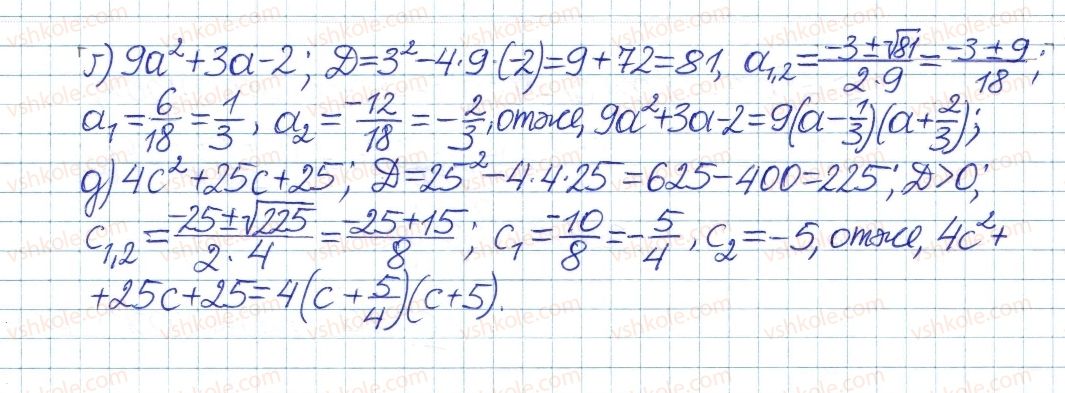 г) 9a² + 3a - 2; D = 3² - 4·9·(-2) = 9 + 72 = 81, a₁,₂ = (-3 ± √81)/(2·9) = (-3 ± 9)/18;
a₁ = 6/18 = 1/3, a₂ = -12/18 = -2/3, отже, 9a² + 3a - 2 = 9(a - 1/3)(a + 2/3);
д) 4c² + 25c + 25; D = 25² - 4·4·25 = 625 - 400 = 225; D > 0;
c₁,₂ = (-25 ± √225)/(2·4) = (-25 + 15)/8; c₁ = -10/8 = -5/4, c₂ = -5, отже, 4c² +
+ 25c + 25 = 4(c + 5/4)(c + 5).